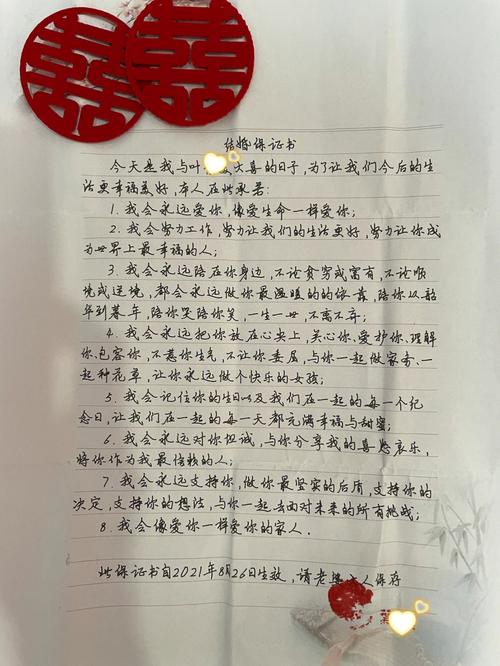 囍 囍
结婚保证书
今天是我与叶 大喜的日子,为了让我们今后的生
活更幸福美好,本人在此承若:
1.我会永远爱你,像爱生命一样爱你;
2.我会努力工作,努力让我们的生活更好,努力让你成
为世界上最幸福的人;
3.我会永远陪在你身边,不论贫穷或富有,不论顺
境或逆境,都会永远做你最温暖的的依靠,陪你从韶
华到暮年,陪你哭陪你笑,一生一世,不离不弃;
4.我会永远把你放在心尖上,关心你、爱护你、理解
你、包容你,不惹你生气,不让你委屈,与你一起做家务、一
起种花草,让你永远做个快乐的女孩;
5.我会记住你的生日以及我们在一起的每一个纪
念日,让我们在一起的每一天都充满幸福与甜蜜;
6.我会永远对你坦诚,与你分享我的喜怒哀乐,
将你作为我最信赖的人;
7.我会永远支持你,做你最坚实的后盾,支持你的
决定,支持你的想法,与你一起去面对未来的所有挑战;
8.我会像爱你一样爱你的家人.
此保证书自2021年8月26日生效,请老 人保存